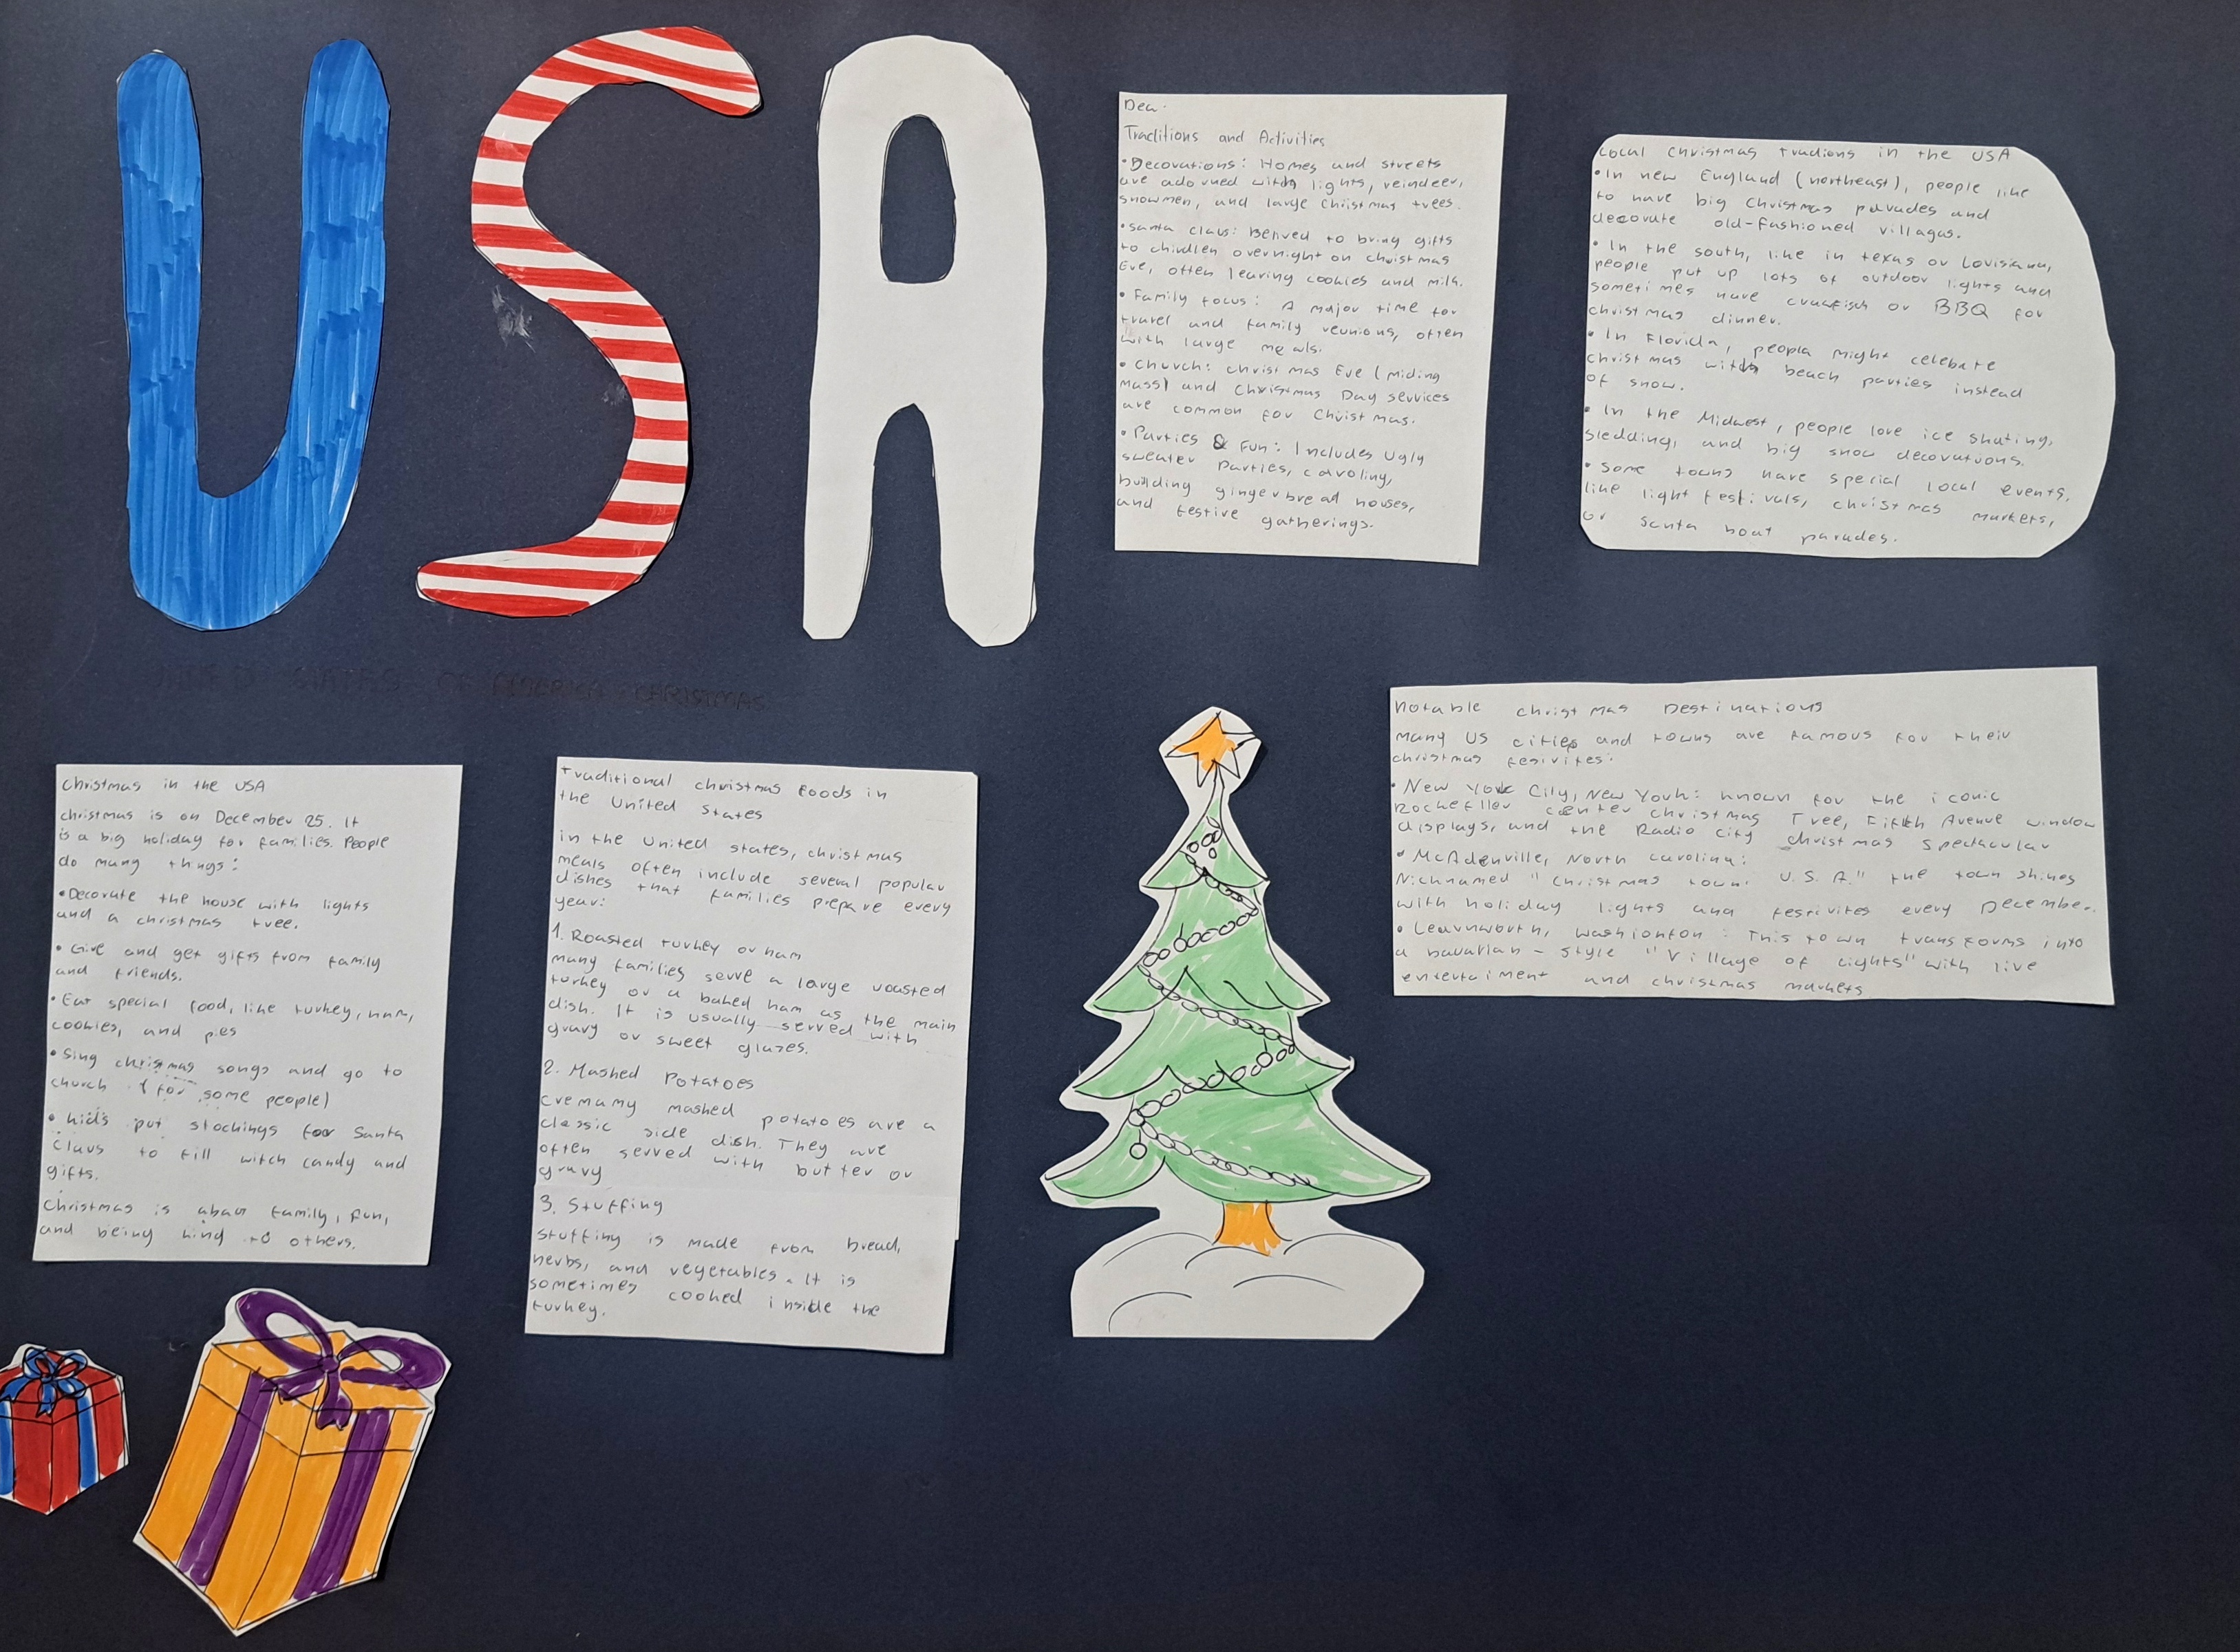 USA
UNITED STATES OF AMERICA CHRISTMAS
Christmas in the USA
christmas is on December 25. It
is a big holiday for families. People
do many things:
•Decorate the house with lights
and a christmas tree.
• Give and get gifts from family
and friends.
• Eat special food, like turkey, ham,
cookies, and pies
• Sing christmas songs and go to
church (for some people)
• kids put stockings for Santa
Claus to fill witch candy and
gifts.
Christmas is about family, fun,
and being kind to others.
Traditional christmas foods in
the United States
in the United states, christmas
meals often include several popular
dishes that families prepare every
year:
1. Roasted turkey or ham
many families serve a large roasted
turkey or a baked ham as the main
dish. It is usually served with
gravy or sweet glazes.
2. Mashed Potatoes
cremamy mashed potatoes are a
classic side dish. They are
often served with butter or
gravy
3. Stuffing
stuffing is made from bread,
herbs, and vegetables. It is
sometimes cooked inside the
turkey.
Dea.
Traditions and Activities
•Decorations: Homes and streets
are adorned with lights, reindeer,
snowmen, and large Christmas trees.
•Santa Claus: Belived to bring gifts
to chirdlen overnight on christmas
Eve, often learing cookies and milk.
• Family focus: A major time for
travel and family reunions, often
with large meals.
• Church: christmas Eve (miding
mass) and Christmas Day services
are common for Christmas.
• Parties & Fun: Includes Ugly
sweater Parties, caroling,
building gingerbread houses,
and festive gatherings.
Local Christmas tradions in the USA
•In new England (northeast), people like
to have big Christmas parades and
decorate old-fashioned villagas.
• In the south, like in texas or Lovisiana,
people put up lots of outdoor lights and
sometimes have crawfisch or BBQ for
christmas dinner.
• In Florida, people might celebrate
christmas with beach parties instead
of snow.
• In the Midwest, people love ice skating,
sledding, and big snow decorations.
• Some towns have special local events,
like light festivals, christmas markets,
or Santa boat parades.
Notable christmas Destinations
many US cities and towns are famous for their
christmas fesivites:
•New York City, New York: known for the iconic
Rockefller center christmas Tree, Fifth Avenue window
displays, and the Radio city christmas spectacular
• McAdenville, North carolina:
Nicknamed "Christmas town U.S.A." the town shines
with holiday lights and festivites every December.
• Leavnworth, Washionton: This town transforms into
a bavarian-style "village of Lights" with live
entertaiment and christmas markets